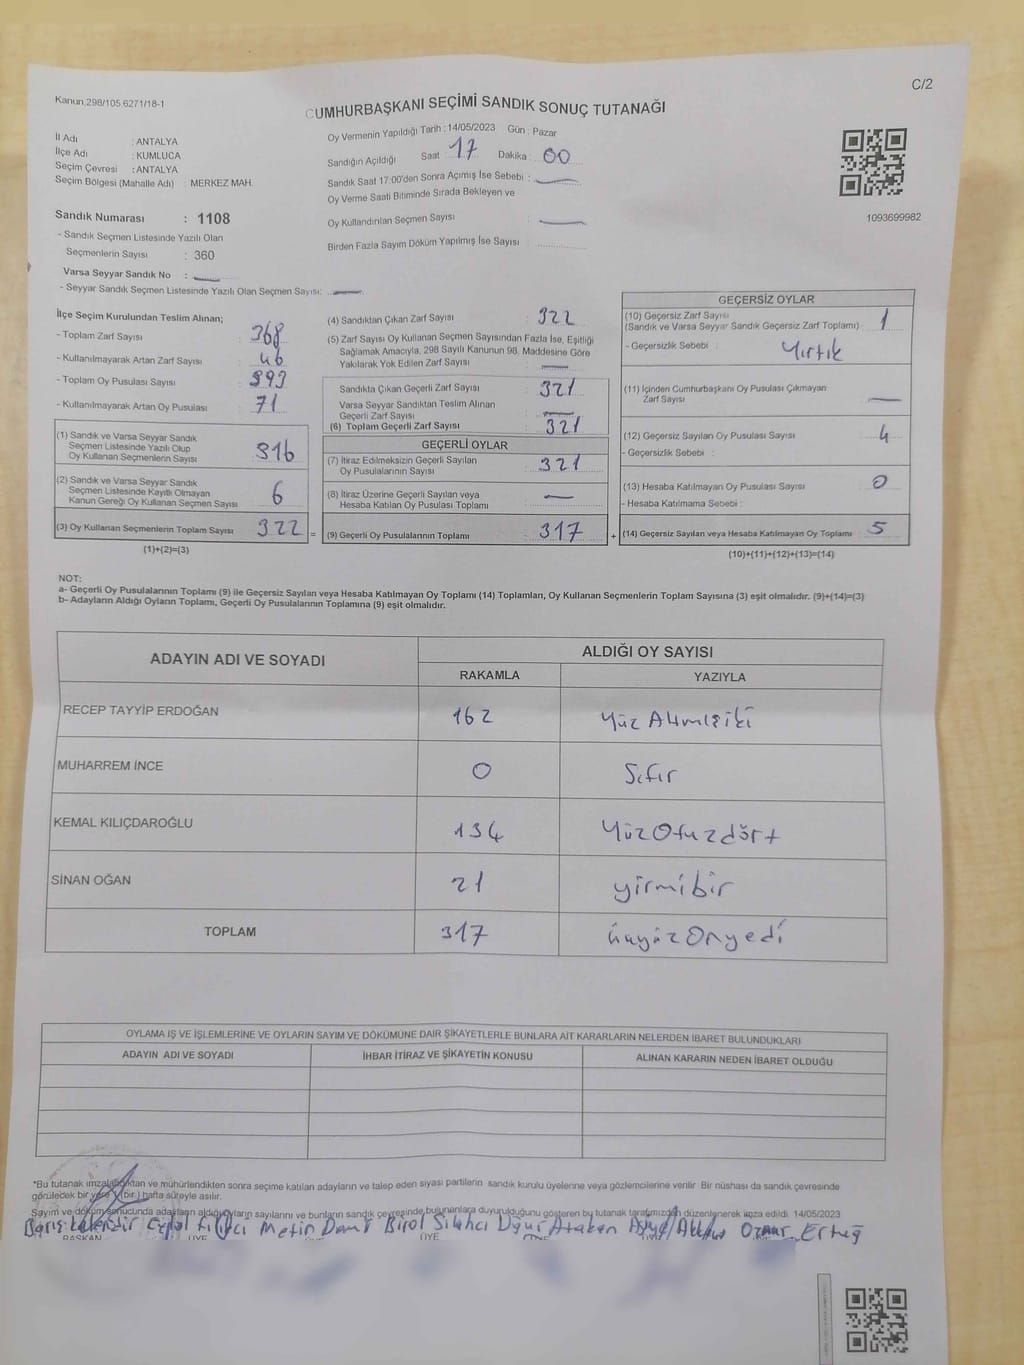 C/2
Kanun,298/105.6271/18-1
CUMHURBAŞKANI SEÇİMİ SANDIK SONUÇ TUTANAĞI
İl Adı : ANTALYA
İlçe Adı : KUMLUCA
Seçim Çevresi : ANTALYA
Seçim Bölgesi (Mahalle Adı) : MERKEZ MAH.
Sandık Numarası : 1108
- Sandık Seçmen Listesinde Yazılı Olan
Seçmenlerin Sayısı : 360
Varsa Seyyar Sandık No :
- Seyyar Sandık Seçmen Listesinde Yazılı Olan Seçmen Sayısı:
Oy Vermenin Yapıldığı Tarih : 14/05/2023 Gün : Pazar
Sandığın Açıldığı Saat : 17 Dakika : 00
Sandık Saat 17:00'den Sonra Açımış İse Sebebi :
Oy Verme Saati Bitiminde Sırada Bekleyen ve
Oy Kullandırılan Seçmen Sayısı :
Birden Fazla Sayım Döküm Yapılmış İse Sayısı :
1093699982
İlçe Seçim Kurulundan Teslim Alınan;
- Toplam Zarf Sayısı : 368
- Kullanılmayarak Artan Zarf Sayısı : 46
- Toplam Oy Pusulası Sayısı : 393
- Kullanılmayarak Artan Oy Pusulası : 71
(1) Sandık ve Varsa Seyyar Sandık
Seçmen Listesinde Yazılı Olup
Oy Kullanan Seçmenlerin Sayısı : 316
(2) Sandık ve Varsa Seyyar Sandık
Seçmen Listesinde Kayıtlı Olmayan
Kanun Gereği Oy Kullanan Seçmen Sayısı : 6
(3) Oy Kullanan Seçmenlerin Toplam Sayısı : 322 =
(1)+(2)=(3)
(4) Sandıktan Çıkan Zarf Sayısı : 322
(5) Zarf Sayısı Oy Kullanan Seçmen Sayısından Fazla İse, Eşitliği
Sağlamak Amacıyla, 298 Sayılı Kanunun 98. Maddesine Göre
Yakılarak Yok Edilen Zarf Sayısı :
Sandıkta Çıkan Geçerli Zarf Sayısı : 321
Varsa Seyyar Sandıktan Teslim Alınan
Geçerli Zarf Sayısı :
(6) Toplam Geçerli Zarf Sayısı : 321
GEÇERLİ OYLAR
(7) İtiraz Edilmeksizin Geçerli Sayılan
Oy Pusulalarının Sayısı : 321
(8) İtiraz Üzerine Geçerli Sayılan veya
Hesaba Katılan Oy Pusulası Toplamı :
(9) Geçerli Oy Pusulalarının Toplamı : 317 +
GEÇERSİZ OYLAR
(10) Geçersiz Zarf Sayısı
(Sandık ve Varsa Seyyar Sandık Geçersiz Zarf Toplamı) : 1
- Geçersizlik Sebebi : Yırtık
(11) İçinden Cumhurbaşkanı Oy Pusulası Çıkmayan
Zarf Sayısı :
(12) Geçersiz Sayılan Oy Pusulası Sayısı : 4
- Geçersizlik Sebebi :
(13) Hesaba Katılmayan Oy Pusulası Sayısı : 0
- Hesaba Katılmama Sebebi :
(14) Geçersiz Sayılan veya Hesaba Katılmayan Oy Toplamı : 5
(10)+(11)+(12)+(13)=(14)
NOT:
a- Geçerli Oy Pusulalarının Toplamı (9) ile Geçersiz Sayılan veya Hesaba Katılmayan Oy Toplamı (14) Toplamları, Oy Kullanan Seçmenlerin Toplam Sayısına (3) eşit olmalıdır. (9)+(14)=(3)
b- Adayların Aldığı Oyların Toplamı, Geçerli Oy Pusulalarının Toplamına (9) eşit olmalıdır.
ADAYIN ADI VE SOYADI ALDIĞI OY SAYISI
RAKAMLA YAZIYLA
RECEP TAYYİP ERDOĞAN 162 Yüz Altmışiki
MUHARREM İNCE 0 Sıfır
KEMAL KILIÇDAROĞLU 134 Yüz Otuzdört
SİNAN OĞAN 21 yirmibir
TOPLAM 317 üçyüzOnyedi
OYLAMA İŞ VE İŞLEMLERİNE VE OYLARIN SAYIM VE DÖKÜMÜNE DAİR ŞİKAYETLERLE BUNLARA AİT KARARLARIN NELERDEN İBARET BULUNDUKLARI
ADAYIN ADI VE SOYADI İHBAR İTİRAZ VE ŞİKAYETİN KONUSU ALINAN KARARIN NEDEN İBARET OLDUĞU
*Bu tutanak imzalandıktan ve mühürlendikten sonra seçime katılan adayların ve talep eden siyasi partilerin sandık kurulu üyelerine veya gözlemcilerine verilir Bir nüshası da sandık çevresinde
görülecek bir yere 1 (bir ) hafta süreyle asılır.
Sayım ve döküm sonucunda adayların aldığı oyların sayılarını ve bunların sandık çevresinde bulunanlara duyurulduğunu gösteren bu tutanak tarafımızdan düzenlenerek imza edildi. 14/05/2023
Barış Eylül Metin Demir Birol Silahcı Uğur Ataken Öznur Ertuğ
BAŞKAN ÜYE